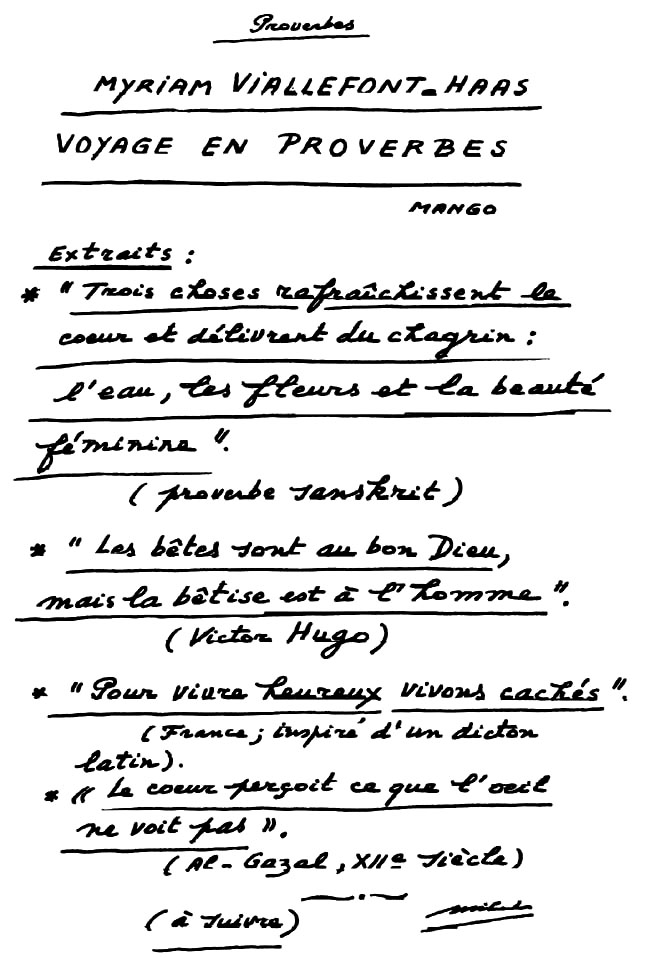 Proverbes
MYRIAM VIALLEFONT-HAAS
VOYAGE EN PROVERBES
MANGO
Extraits :
* "Trois choses rafraîchissent le
coeur et délivrent du chagrin :
l'eau, les fleurs et la beauté
féminine".
(proverbe sanskrit)
* "Les bêtes sont au bon Dieu,
mais la bêtise est à l'homme".
(Victor Hugo)
* "Pour vivre heureux vivons cachés".
(France ; inspiré d'un dicton
latin).
* "Le coeur perçoit ce que l'oeil
ne voit pas".
(Al-Gazal, XIIe siècle)
(à suivre)